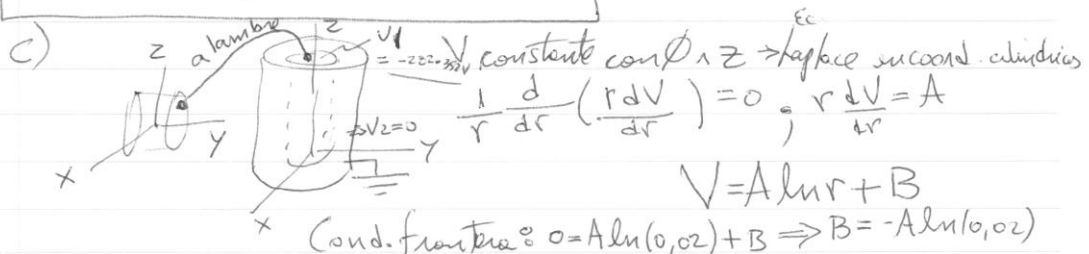 Ec
C) alambre Z V1 = -222.352V V constante con Ø ∧ Z → Laplace en coord. cilindricas
Z Y X
1/r d/dr (r dV/dr) = 0 ; r dV/dr = A
⇒V2=0 Y X
V = A ln r + B
Cond. frontera: 0 = A ln(0,02) + B ⇒ B = -A ln(0,02)